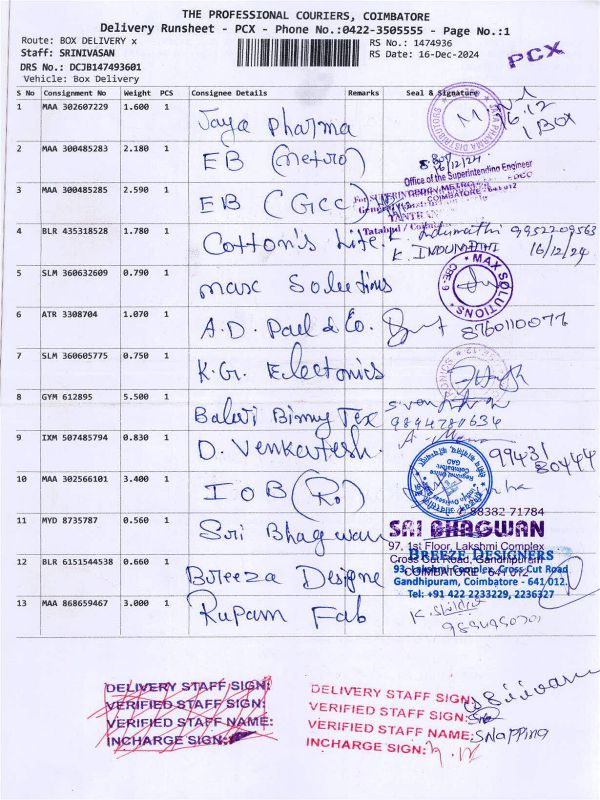 THE PROFESSIONAL COURIERS, COIMBATORE
Delivery Runsheet - PCX - Phone No.:0422-3505555 - Page No.:1
Route: BOX DELIVERY x
RS No.: 1474936
Staff: SRINIVASAN
RS Date: 16-Dec-2024
DRS No.: DCJB147493601
Vehicle: Box Delivery
PCX
S No Consignment No Weight PCS Consignee Details Remarks Seal & Signature
1 MAA 302607229 1.600 1 Jaya Pharma 16.12
1 BOX
2 MAA 300485283 2.180 1 EB (Metro) 16/12/24
Office of the Superintending Engineer
3 MAA 300485285 2.590 1 EB (GCC)
Tatabad / Coimbatore
4 BLR 435318528 1.780 1 Cotton's Life K. Indumathi 9952209563
K. INDUMATHI 16/12/24
5 SLM 360632609 0.790 1 Max Solutions MAX SOLUTIONS * CBE-9 *
6 ATR 3308704 1.070 1 A.D. Paul & Co. 8760110077
7 SLM 360605775 0.750 1 K.G. Electonics
8 GYM 612895 5.500 1 Balaji Binny Tex
9894780634
9 IXM 507485794 0.830 1 D. Venkatesh. 99431
80444
10 MAA 302566101 3.400 1 IOB (Ro)
98382 71784
11 MYD 8735787 0.560 1 Sri Bhagwan SRI BHAGWAN
97, 1st Floor, Lakshmi Complex
Cross Cut Road, Gandhipuram
COIMBATORE - 641 012
12 BLR 6151544538 0.660 1 Breeza Designe BREEZE DESIGNERS
93, Lakshmi Complex, Cross Cut Road
Gandhipuram, Coimbatore - 641 012.
Tel: +91 422 2233229, 2236327
13 MAA 868659467 3.000 1 Rupam Fab
DELIVERY STAFF SIGN:
VERIFIED STAFF SIGN:
VERIFIED STAFF NAME:
INCHARGE SIGN:
DELIVERY STAFF SIGN:
VERIFIED STAFF SIGN:
VERIFIED STAFF NAME: Snapping
INCHARGE SIGN: